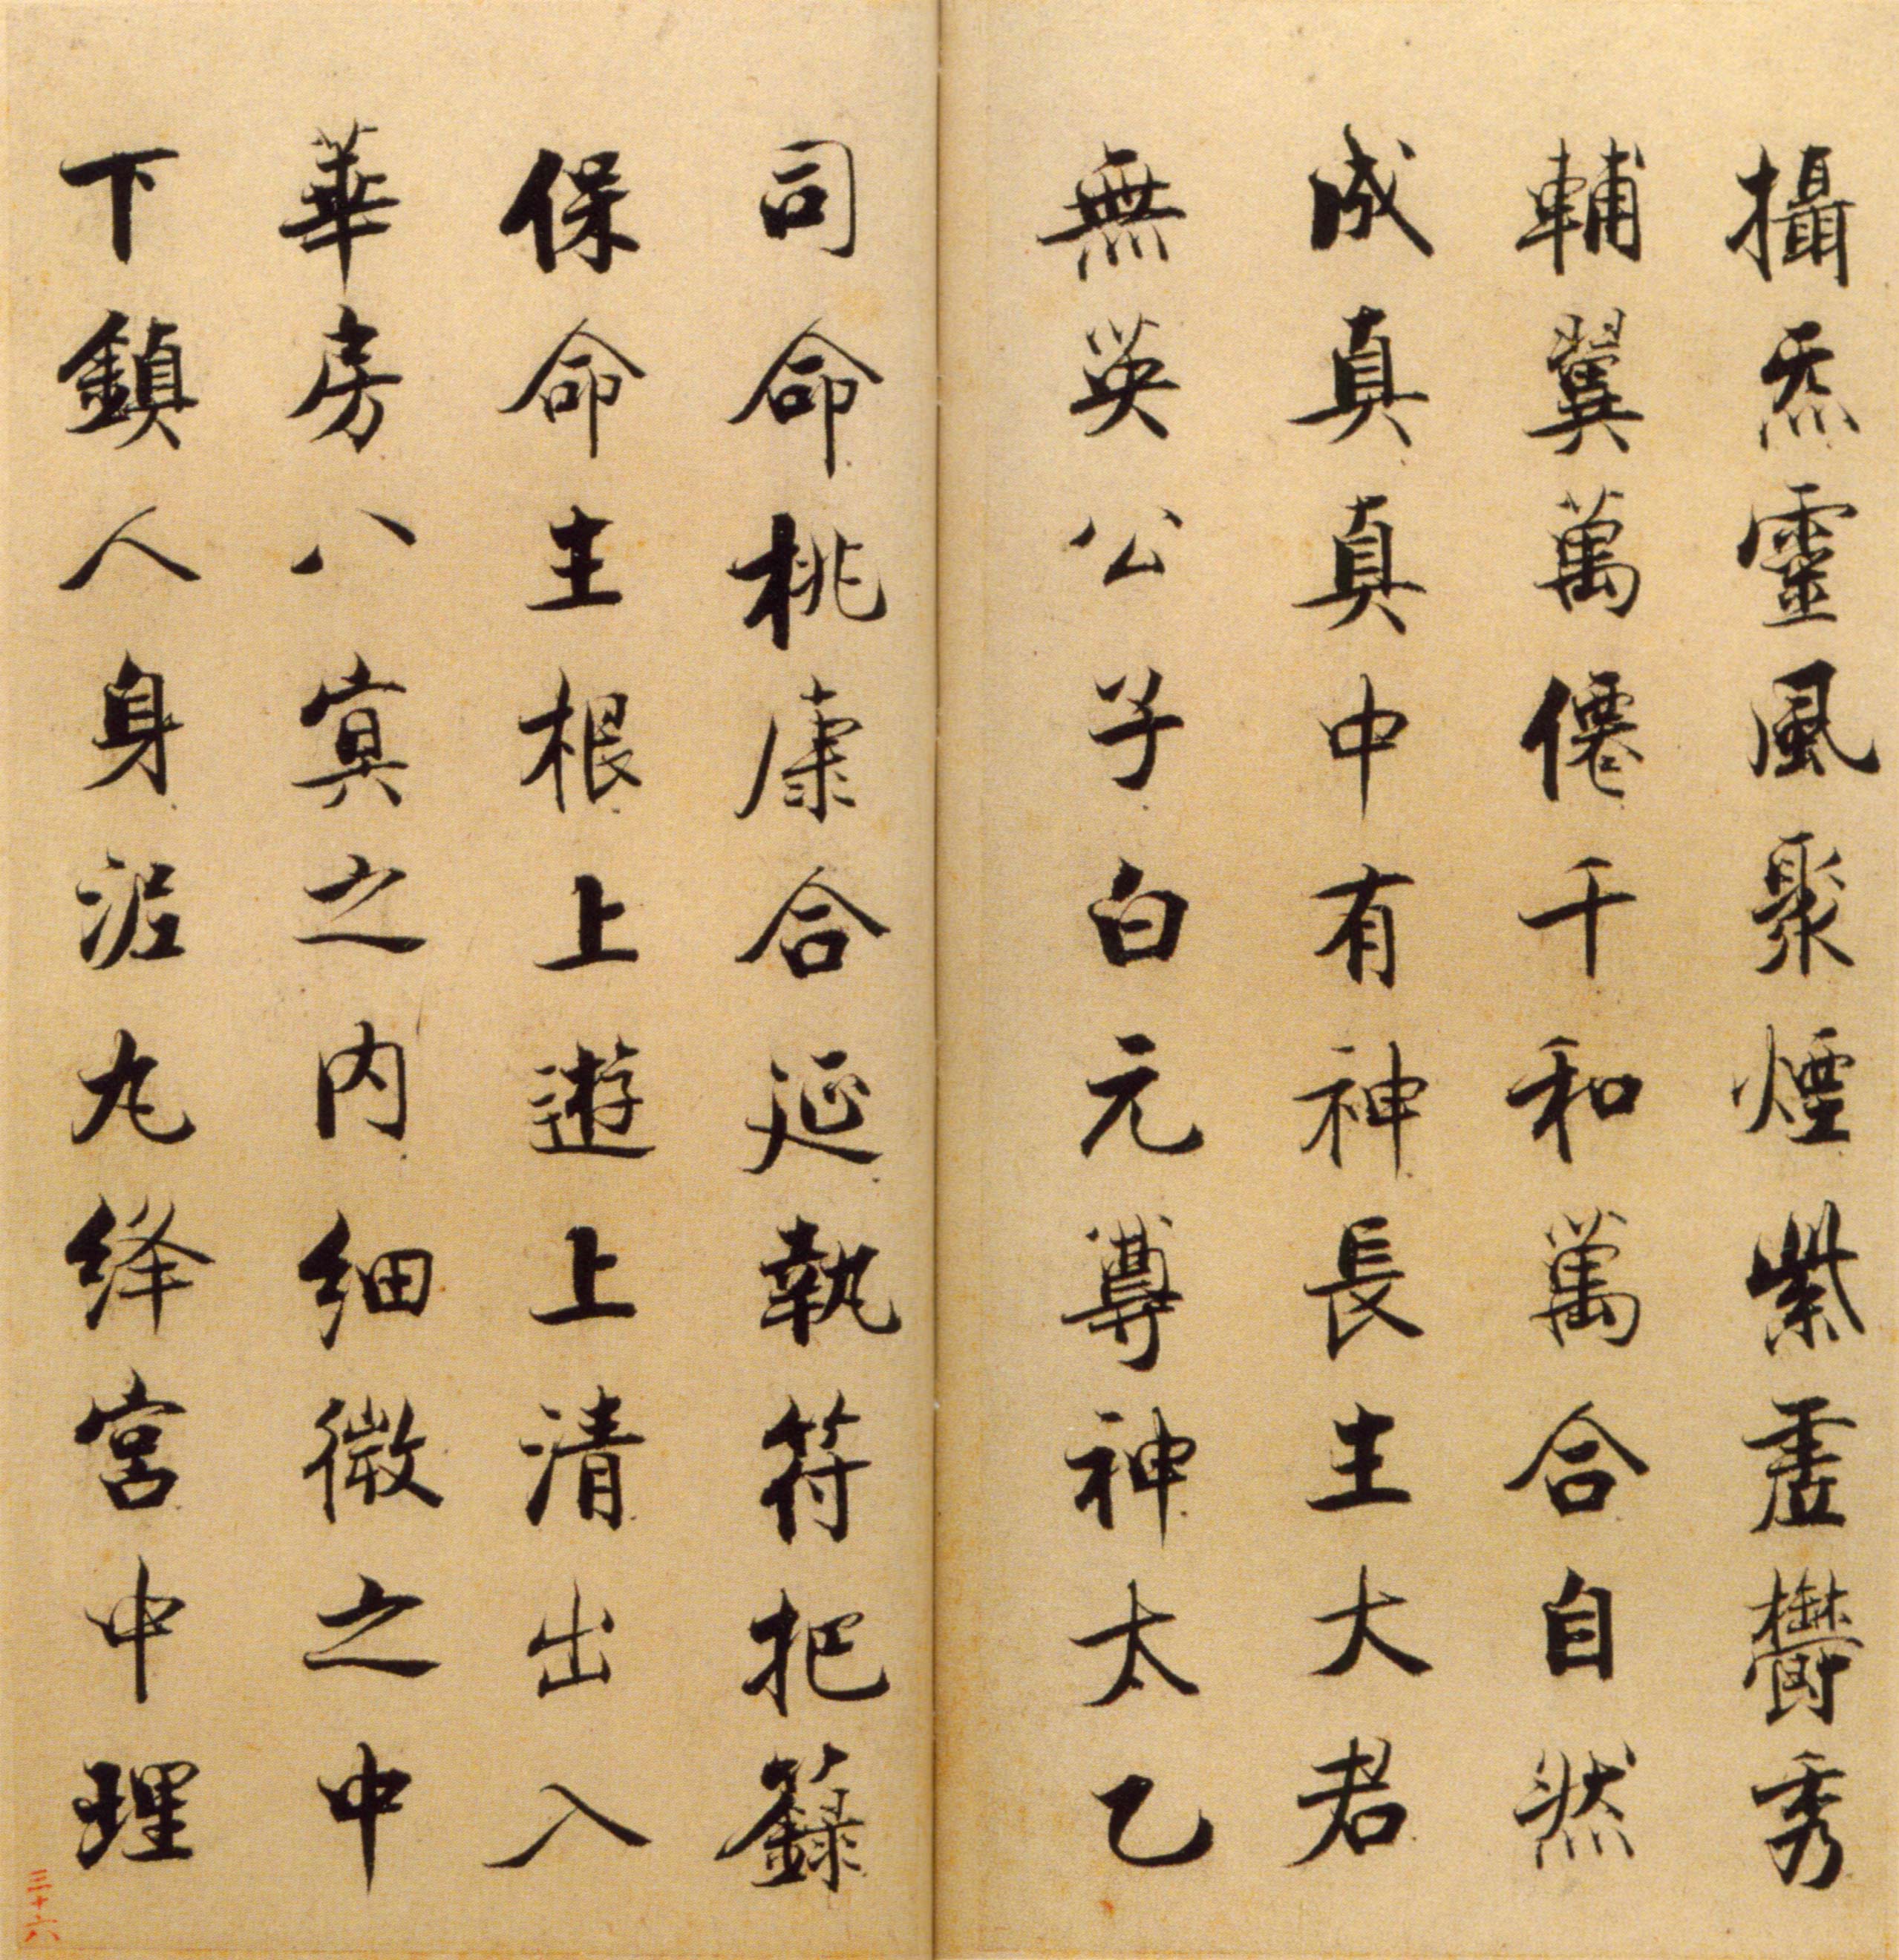 攝炁靈風聚煙紫虛鬱秀
輔翼萬僊千和萬合自然
成真真中有神長主大君
無英公子白元尊神太乙
司命桃康合延執符把籙
保命主根上遊上清出入
華房八寘之内細微之中
下鎮人身泥丸絳宮中理
三十六